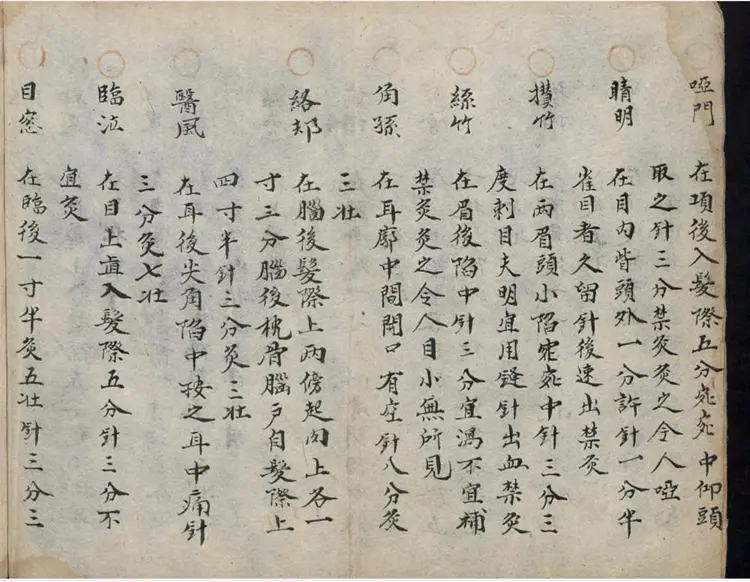 啞門 在項後入髮際五分宛宛中仰頭
取之針三分禁灸灸之令人啞
睛明 在目内眥頭外一分許針一分半
雀目者久留針後速出禁灸
攢竹 在两眉頭小陷宛宛中針三分三
度刺目夫明宜用鏠針出血禁灸
絲竹 在眉後陷中針三分宜瀉不宜補
禁灸灸之令人目小無所見
角孫 在耳廓中間開口有空針八分灸
三壮
絡却 在腦後髮際上两傍起肉上各一
寸三分腦後枕骨腦户自髮際上
四寸半針三分灸三壮
醫風 在耳後尖角陷中按之耳中痛針
三分灸七壮
臨泣 在目上直入髮際五分針三分不
宜灸
目窓 在臨後一寸半灸五壮針三分三